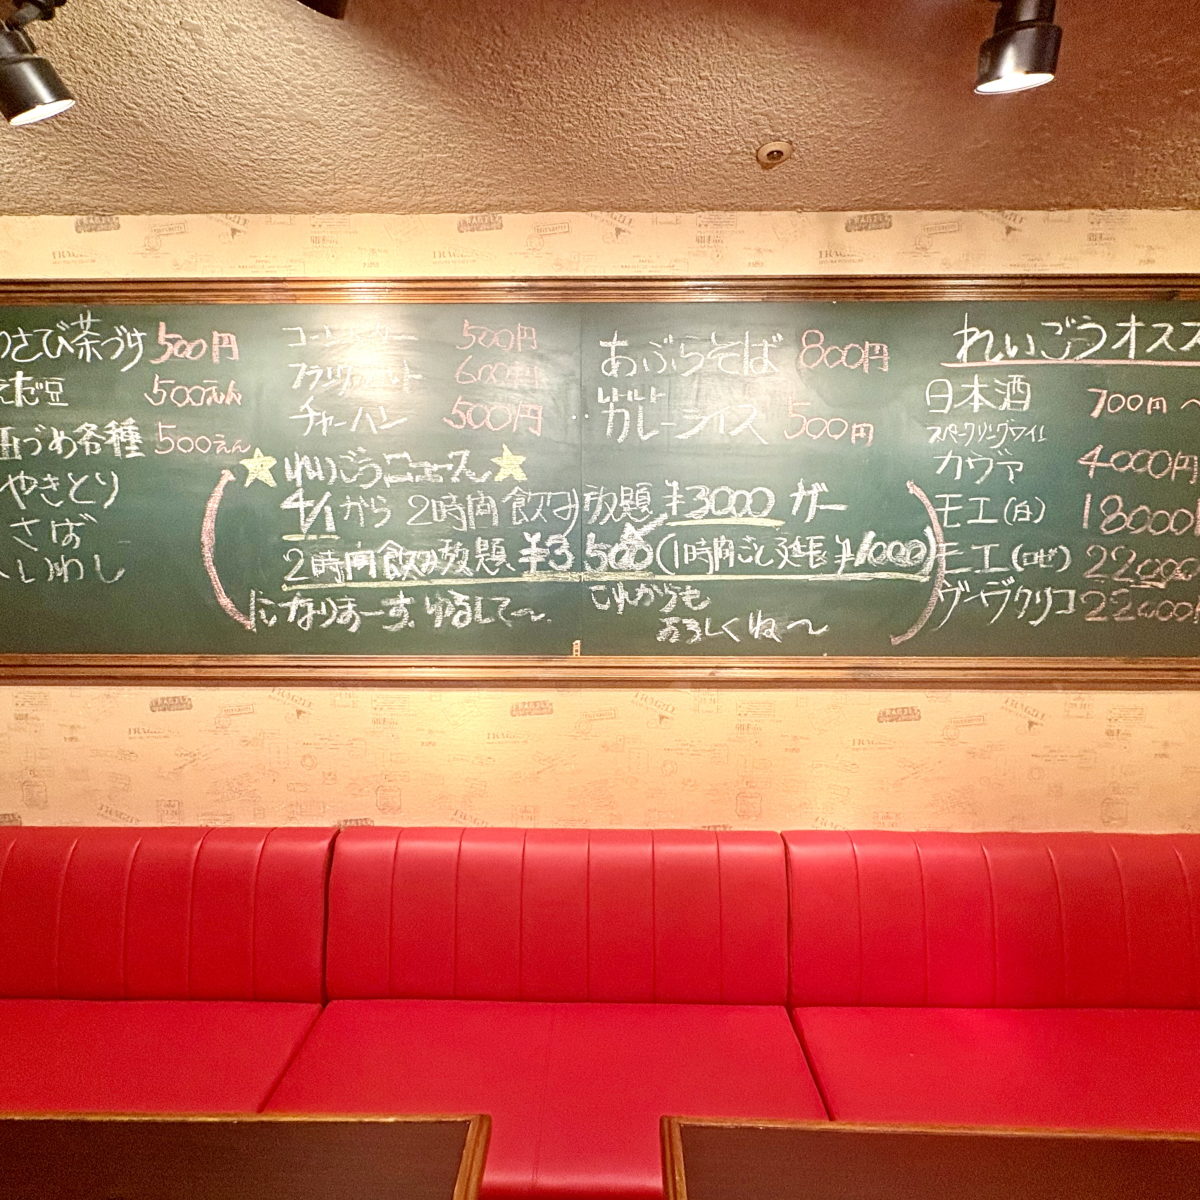 わさび茶づけ 500円
えだ豆 500えん
缶づめ各種 500えん
やきとり
さば
いわし
500円
600円
チャーハン 500円
あぶらそば 800円
レトルト
カレーライス 500円
れいごうニュース
4/1から 2時間飲み放題 ¥3000 が
2時間飲み放題 ¥3500(1時間ごと延長¥1000)
になりまーす。ゆるして〜
これからも
よろしくね〜
れいごうオスス
日本酒 700円〜
スパークリングワイン
カヴァ 4000円
モエ(白) 18000
モエ(ロゼ) 22000
ヴーヴクリコ 22000
FRAGILE